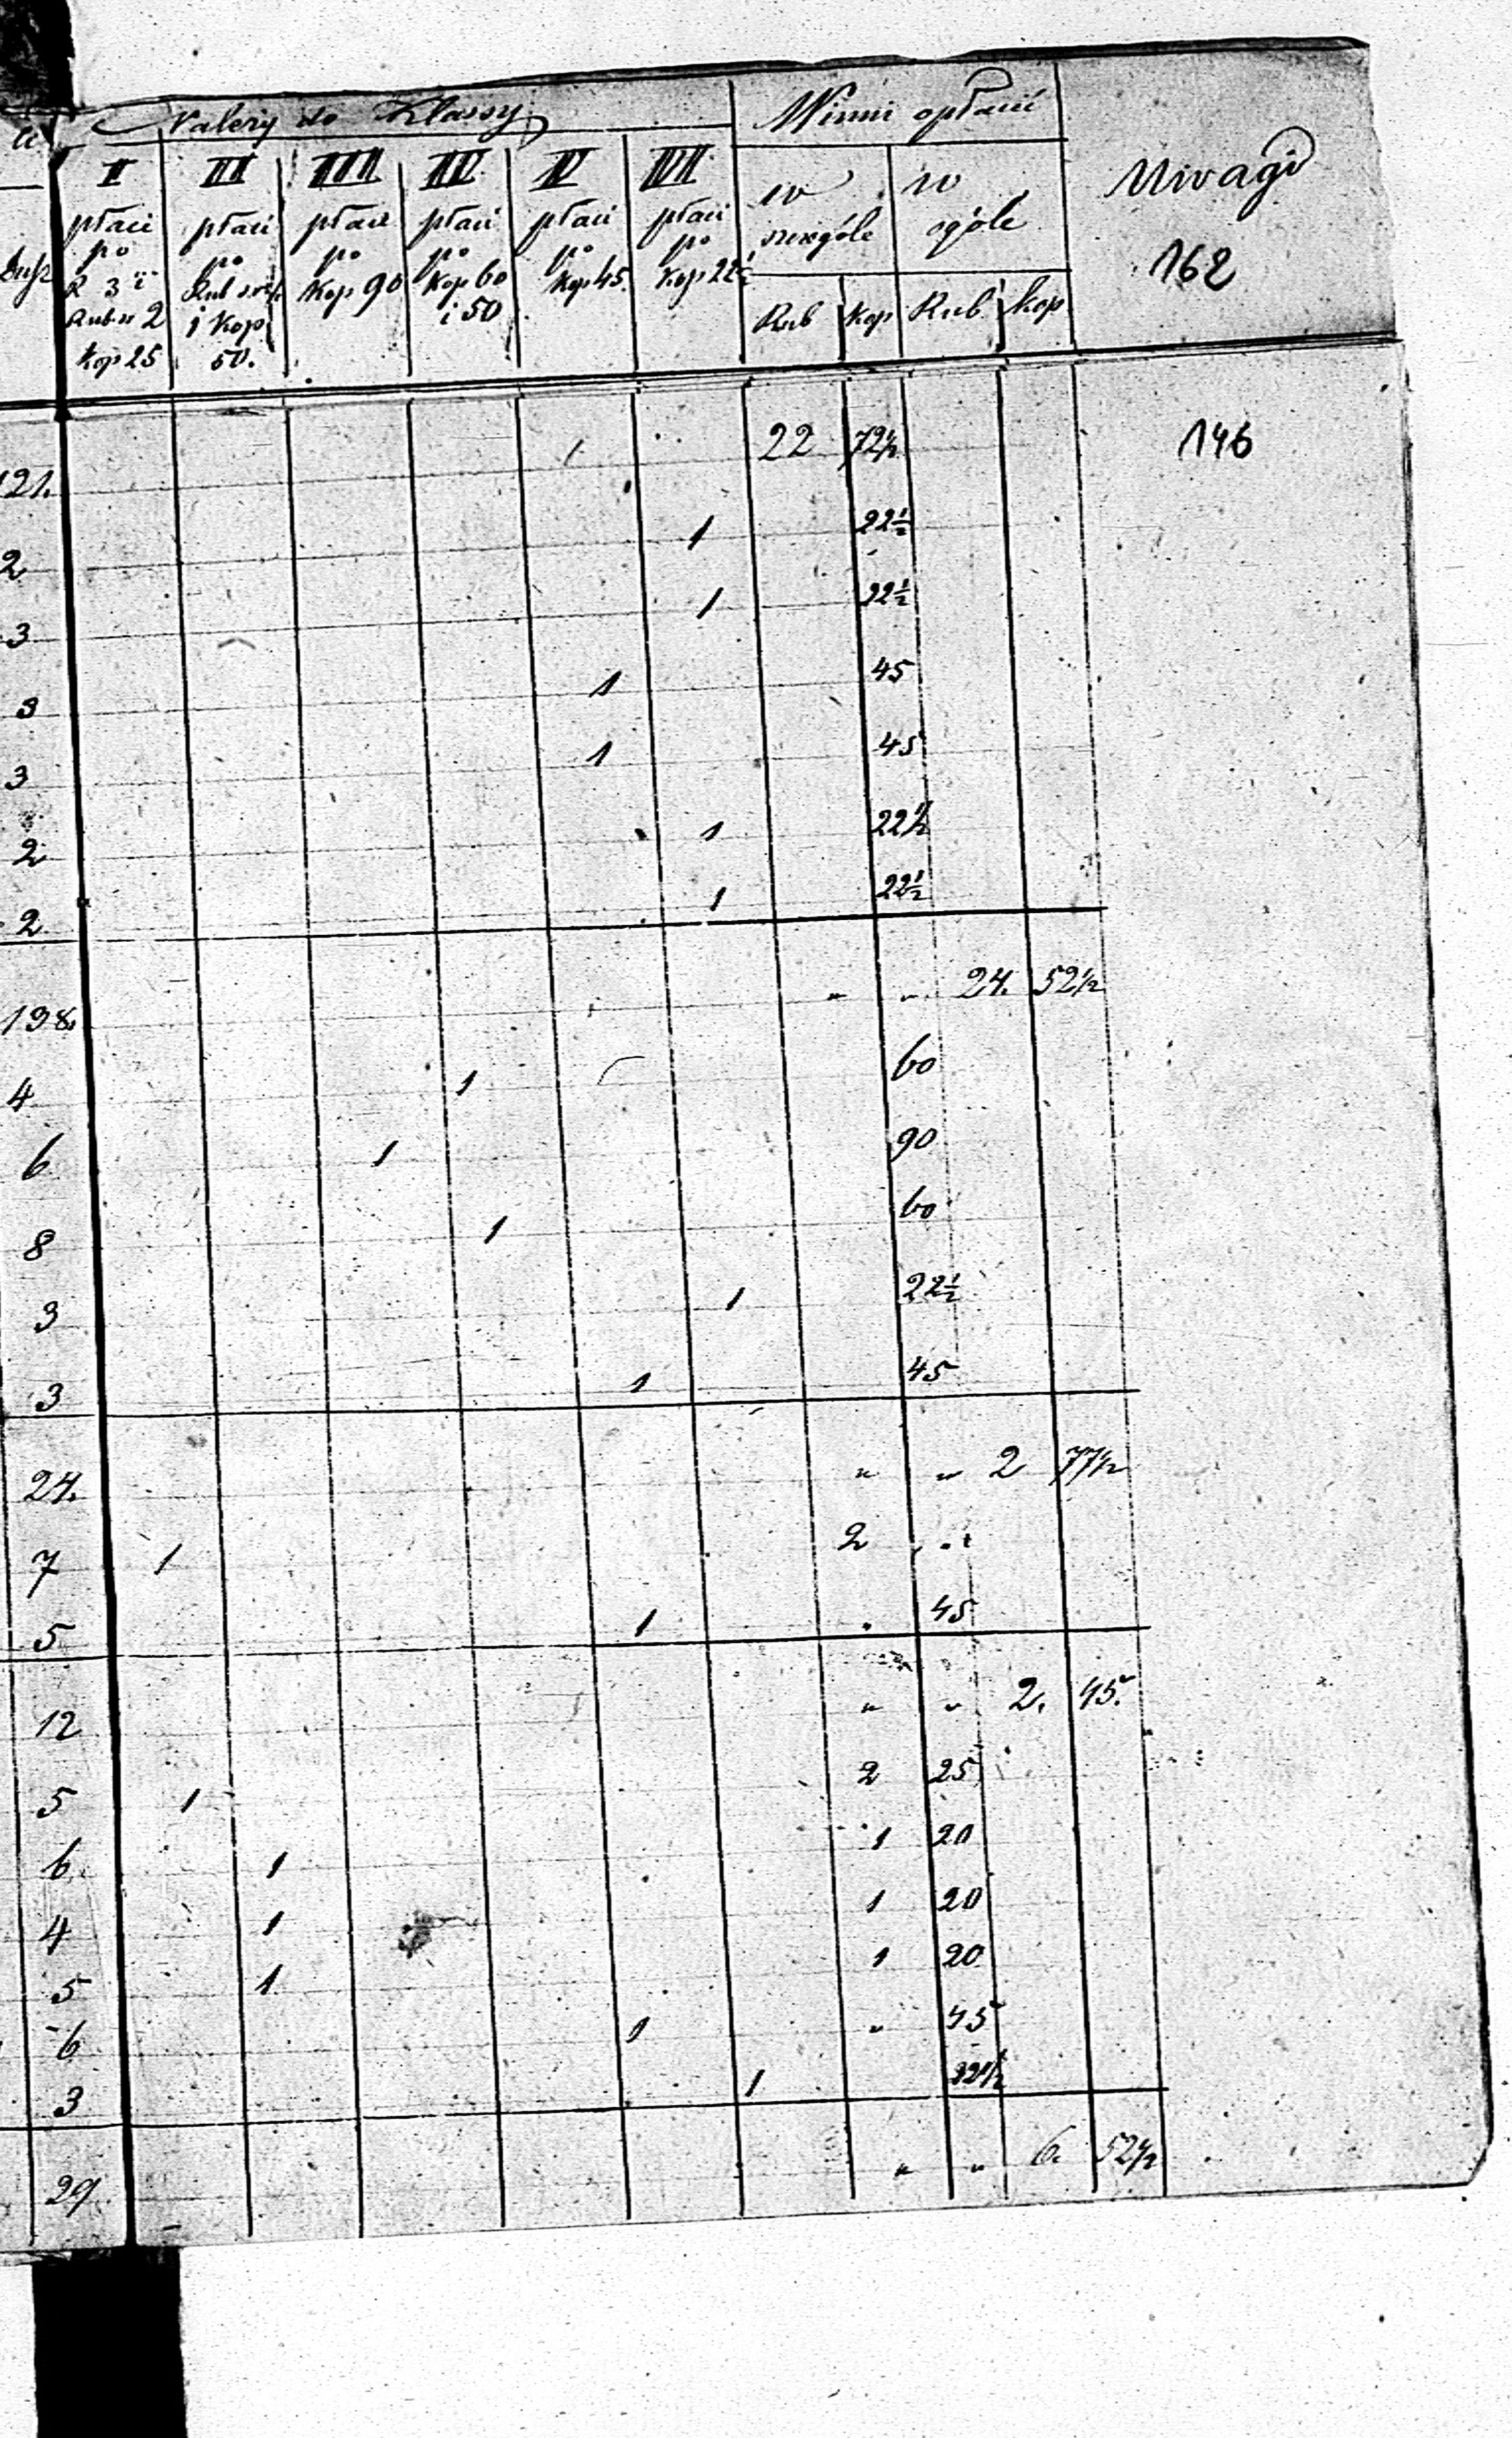 Należy do Klassy
Winni opłacić
Uwagi
162
I płaci po R 3 i Rub sr 2 Kop 25
II płaci po Rub sr 1 i Kop 50.
III płaci po Kop 90
IV płaci po Kop 60 i 50
V płaci po Kop 45.
VI płaci po Kop 22½
w szczególe
w ogóle
Rub Kop Rub. Kop
121. 1 22 72½ 146
2 1 22½
3 1 22½
3 1 45
3 1 45
2 1 22½
2 1 22½
138. " " 24. 52½
4 1 60
6 1 90
8 1 60
3 1 22½
3 1 45
24. " " 2 77½
7 1 2 "
5 1 45
12 " " 2. 45.
5 1 2 25
6 1 1 20
4 1 1 20
5 1 1 20
6 1 " 45
3 1 22½
29 " " 6. 52½